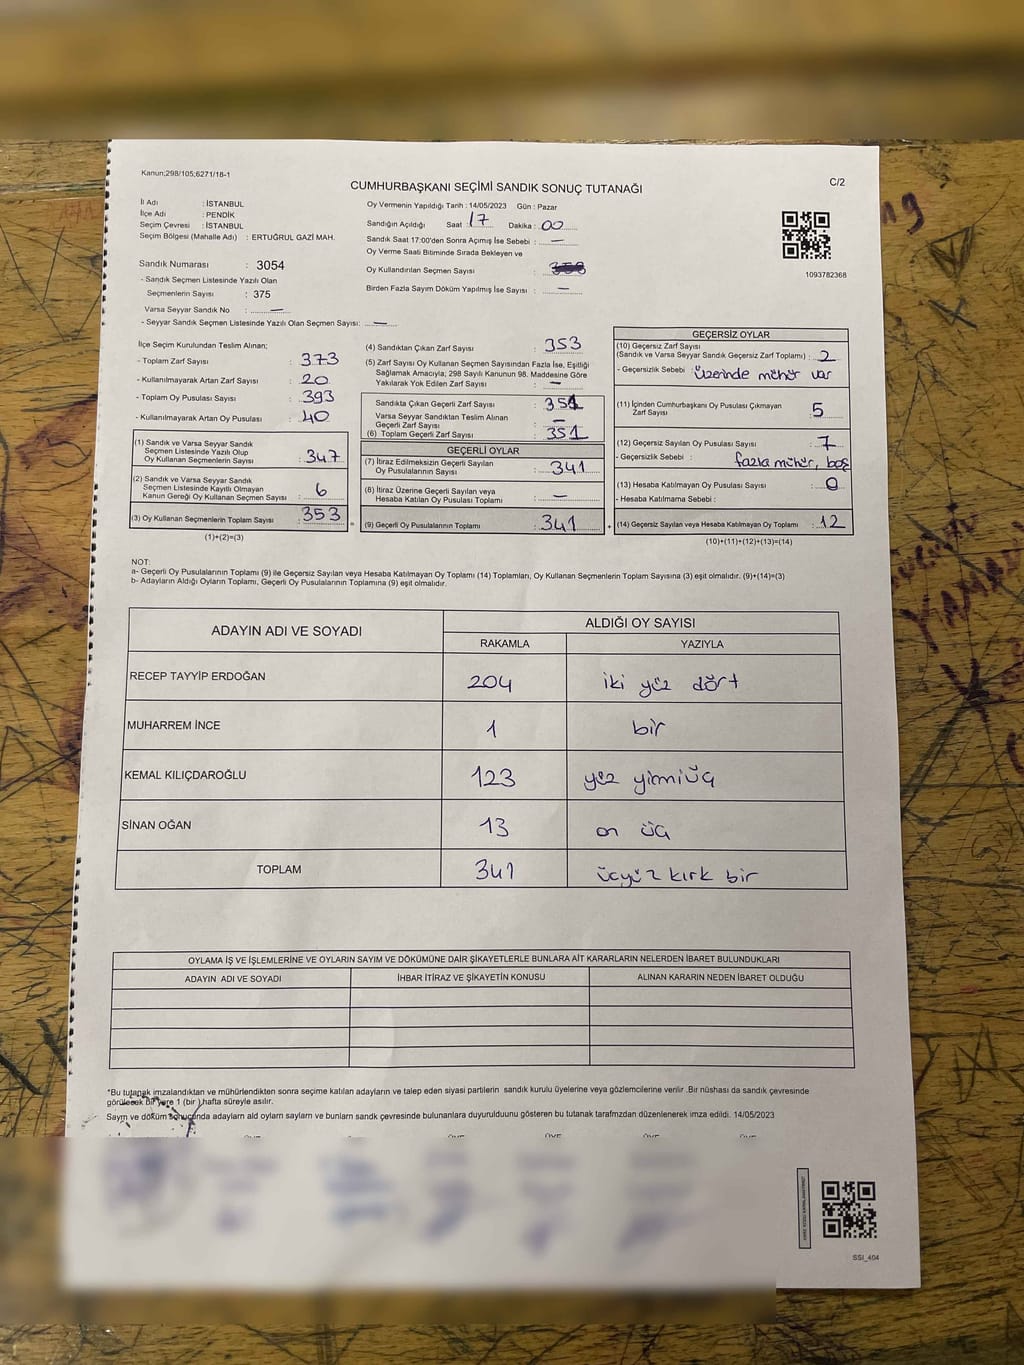 Kanun;298/105;6271/18-1
CUMHURBAŞKANI SEÇİMİ SANDIK SONUÇ TUTANAĞI
C/2
İl Adı : İSTANBUL
İlçe Adı : PENDİK
Seçim Çevresi : İSTANBUL
Seçim Bölgesi (Mahalle Adı) : ERTUĞRUL GAZİ MAH.
Sandık Numarası : 3054
- Sandık Seçmen Listesinde Yazılı Olan
Seçmenlerin Sayısı : 375
Varsa Seyyar Sandık No : —
- Seyyar Sandık Seçmen Listesinde Yazılı Olan Seçmen Sayısı: —
Oy Vermenin Yapıldığı Tarih : 14/05/2023 Gün : Pazar
Sandığın Açıldığı Saat : 17 Dakika : 00
Sandık Saat 17:00'den Sonra Açımış İse Sebebi : —
Oy Verme Saati Bitiminde Sırada Bekleyen ve
Oy Kullandırılan Seçmen Sayısı :
Birden Fazla Sayım Döküm Yapılmış İse Sayısı : —
1093782368
İlçe Seçim Kurulundan Teslim Alınan;
- Toplam Zarf Sayısı : 373
- Kullanılmayarak Artan Zarf Sayısı : 20
- Toplam Oy Pusulası Sayısı : 393
- Kullanılmayarak Artan Oy Pusulası : 40
(1) Sandık ve Varsa Seyyar Sandık
Seçmen Listesinde Yazılı Olup
Oy Kullanan Seçmenlerin Sayısı : 347
(2) Sandık ve Varsa Seyyar Sandık
Seçmen Listesinde Kayıtlı Olmayan
Kanun Gereği Oy Kullanan Seçmen Sayısı : 6
(3) Oy Kullanan Seçmenlerin Toplam Sayısı : 353
(1)+(2)=(3)
=
(4) Sandıktan Çıkan Zarf Sayısı : 353
(5) Zarf Sayısı Oy Kullanan Seçmen Sayısından Fazla İse, Eşitliği
Sağlamak Amacıyla; 298 Sayılı Kanunun 98. Maddesine Göre
Yakılarak Yok Edilen Zarf Sayısı : —
Sandıkta Çıkan Geçerli Zarf Sayısı : 351
Varsa Seyyar Sandıktan Teslim Alınan
Geçerli Zarf Sayısı : —
(6) Toplam Geçerli Zarf Sayısı : 351
GEÇERLİ OYLAR
(7) İtiraz Edilmeksizin Geçerli Sayılan
Oy Pusulalarının Sayısı : 341
(8) İtiraz Üzerine Geçerli Sayılan veya
Hesaba Katılan Oy Pusulası Toplamı : —
(9) Geçerli Oy Pusulalarının Toplamı : 341
+
GEÇERSİZ OYLAR
(10) Geçersiz Zarf Sayısı
(Sandık ve Varsa Seyyar Sandık Geçersiz Zarf Toplamı) : 2
- Geçersizlik Sebebi : üzerinde mühür var
(11) İçinden Cumhurbaşkanı Oy Pusulası Çıkmayan
Zarf Sayısı : 5
(12) Geçersiz Sayılan Oy Pusulası Sayısı : 7
- Geçersizlik Sebebi : fazla mühür, boş
(13) Hesaba Katılmayan Oy Pusulası Sayısı : 0
- Hesaba Katılmama Sebebi :
(14) Geçersiz Sayılan veya Hesaba Katılmayan Oy Toplamı : 12
(10)+(11)+(12)+(13)=(14)
NOT:
a- Geçerli Oy Pusulalarının Toplamı (9) ile Geçersiz Sayılan veya Hesaba Katılmayan Oy Toplamı (14) Toplamları, Oy Kullanan Seçmenlerin Toplam Sayısına (3) eşit olmalıdır. (9)+(14)=(3)
b- Adayların Aldığı Oyların Toplamı, Geçerli Oy Pusulalarının Toplamına (9) eşit olmalıdır.
ADAYIN ADI VE SOYADI
ALDIĞI OY SAYISI
RAKAMLA YAZIYLA
RECEP TAYYİP ERDOĞAN 204 iki yüz dört
MUHARREM İNCE 1 bir
KEMAL KILIÇDAROĞLU 123 yüz yirmiüç
SİNAN OĞAN 13 on üç
TOPLAM 341 üçyüz kırk bir
OYLAMA İŞ VE İŞLEMLERİNE VE OYLARIN SAYIM VE DÖKÜMÜNE DAİR ŞİKAYETLERLE BUNLARA AİT KARARLARIN NELERDEN İBARET BULUNDUKLARI
ADAYIN ADI VE SOYADI İHBAR İTİRAZ VE ŞİKAYETİN KONUSU ALINAN KARARIN NEDEN İBARET OLDUĞU
*Bu tutanak imzalandıktan ve mühürlendikten sonra seçime katılan adayların ve talep eden siyasi partilerin sandık kurulu üyelerine veya gözlemcilerine verilir .Bir nüshası da sandık çevresinde
görülecek bir yere 1 (bir ) hafta süreyle asılır.
Sayım ve döküm sonucunda adayların ald oyların sayların ve bunların sandık çevresinde bulunanlara duyurulduunu gösteren bu tutanak tarafmzdan düzenlenerek imza edildi. 14/05/2023
SSI_404